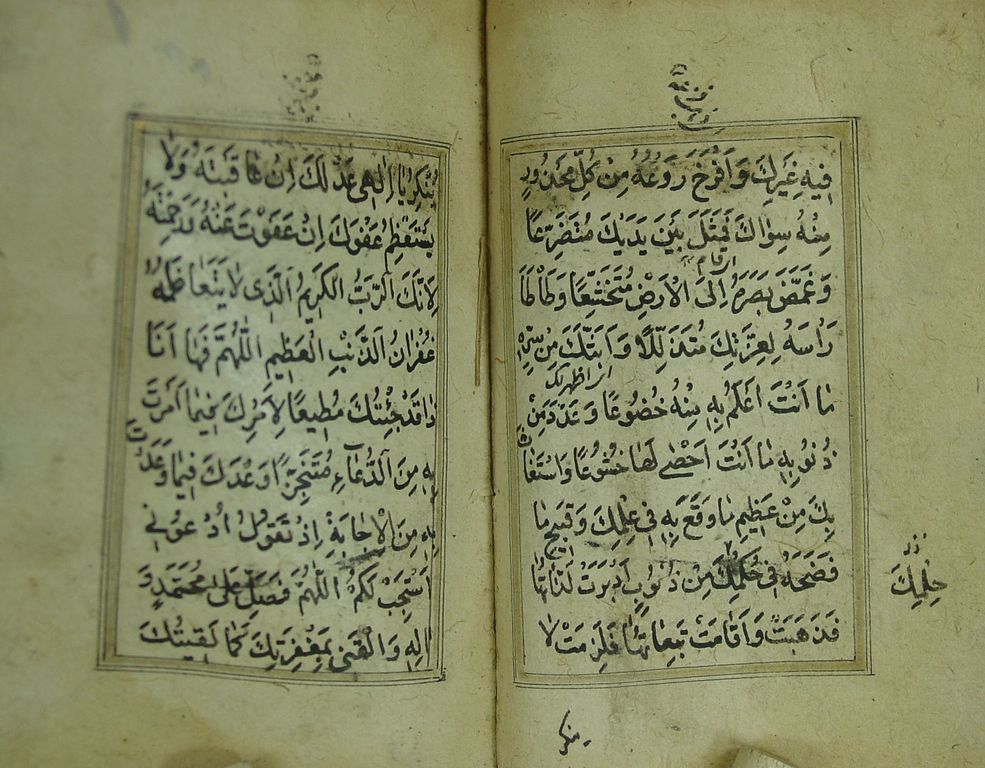 فِيهِ غَيْرِكَ وَاَفْرَخَ رَوْعُهُ مِنْ كُلِّ مَحْذُورٍ
مِنْهُ سِوَاكَ فَمَثَلَ بَيْنَ يَدَيْكَ مُتَضَرِّعًا
وَغَمَّضَ بَصَرَهُ اِلَى الْاَرْضِ مُتَخَشِّعًا وَطَأْطَأَ
رَأْسَهُ لِعِزَّتِكَ مُتَذَلِّلًا وَاَبَثَّكَ مِنْ سِرِّهِ
مَا اَنْتَ اَعْلَمُ بِهِ مِنْهُ خُضُوعًا وَعَدَّدَ مِنْ
ذُنُوبِهِ مَا اَنْتَ اَحْصٰى لَهَا خُشُوعًا وَاسْتَغَاثَ
بِكَ مِنْ عَظِيمِ مَا وَقَعَ بِهِ فِي عِلْمِكَ وَقَبِيحِ مَا
فَضَحَهُ فِي حُكْمِكَ مِنْ ذُنُوبٍ اَدْبَرَتْ لَذَّاتُهَا
فَذَهَبَتْ وَاَقَامَتْ تَبِعَاتُهَا فَلَزِمَتْ لَا
حِلْمِكَ
يُنْكِرُ يَا اِلٰهِي عَدْلَكَ اِنْ عَاقَبْتَهُ وَلَا
يَسْتَعْظِمُ عَفْوَكَ اِنْ عَفَوْتَ عَنْهُ وَرَحِمْتَهُ
لِاَنَّكَ الرَّبُّ الْكَرِيمُ الَّذِى لَا يَتَعَاظَمُهُ
غُفْرَانُ الذَّنْبِ الْعَظِيمِ اَللّٰهُمَّ فَهَا اَنَا
ذَا قَدْ جِئْتُكَ مُطِيعًا لِاَمْرِكَ فِيمَا اَمَرْتَ
بِهِ مِنَ الدُّعَاءِ مُتَنَجِّزًا وَعْدَكَ فِيمَا وَعَدْتَ
بِهِ مِنَ الْاِجَابَةِ اِذْ تَقُولُ اُدْعُونِي
اَسْتَجِبْ لَكُمْ اَللّٰهُمَّ فَصَلِّ عَلٰى مُحَمَّدٍ وَ
اٰلِهِ وَالْقَنِي بِمَغْفِرَتِكَ كَمَا لَقِيتُكَ